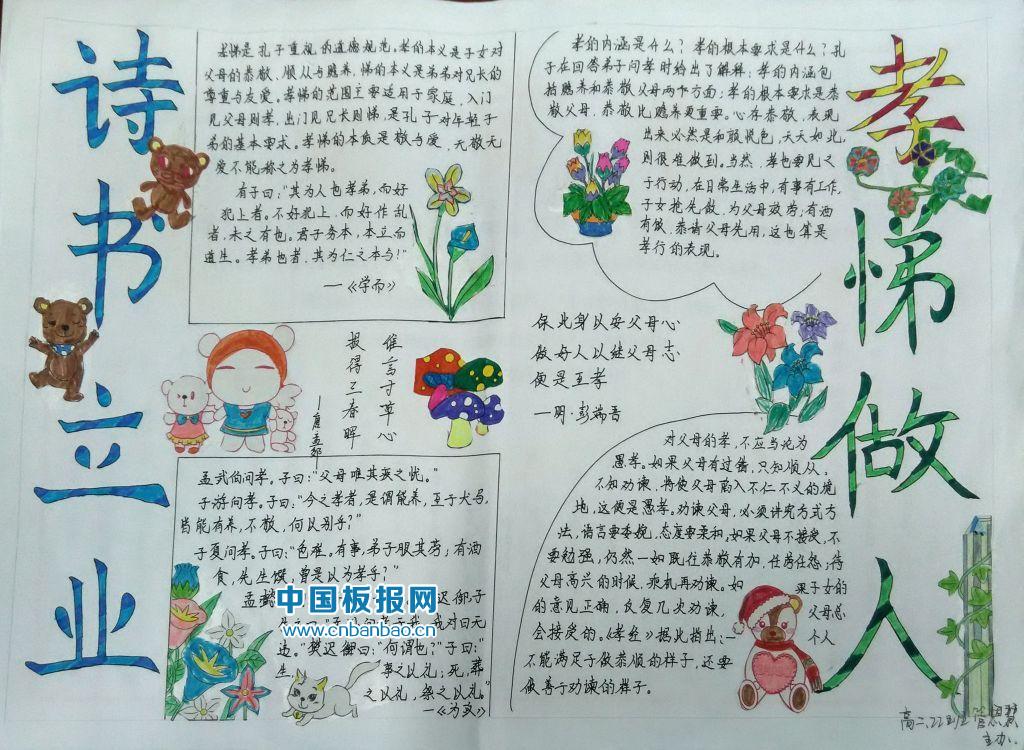 诗书立业
孝悌做人
孝悌是孔子重视的道德规范。孝的本义是子女对
父母的恭敬、顺从与赡养，悌的本义是弟弟对兄长的
尊重与友爱。孝悌的范围主要适用于家庭，入门
见父母则孝，出门见兄长则悌，是孔子对年轻子
弟的基本要求。孝悌的本质是敬与爱，无敬无
爱不能称之为孝悌。
有子曰："其为人也孝弟，而好
犯上者。不好犯上，而好作乱
者，未之有也。君子务本，本立而
道生。孝弟也者，其为仁之本与！"
—《学而》
孝的内涵是什么？孝的根本要求是什么？孔
子在回答弟子问孝时给出了解释：孝的内涵包
括赡养和恭敬父母两个方面；孝的根本要求是恭
敬父母，恭敬比赡养更重要。心存恭敬，表现
出来必然是和颜悦色，天天如此，
则很难做到。当然，孝也要见之
于行动，在日常生活中，有事有工作，
子女抢先做，为父母效劳；有酒
有饭，恭请父母先用，这也算是
孝行的表现。
谁言寸草心
报得三春晖
—唐·孟郊
保此身以安父母心
做好人以继父母志
便是至孝
—明·彭端吾
孟武伯问孝。子曰："父母唯其疾之忧。"
子游问孝。子曰："今之孝者，是谓能养，至于犬马，
皆能有养，不敬，何以别乎？"
子夏问孝。子曰："色难。有事，弟子服其劳；有酒
食，先生馔，曾是以为孝乎？"
孟懿 迟御，子
我对曰无
违。"樊迟 曰："何谓也？"子曰：
生， 事之以礼；死，葬
之以礼，祭之以礼。"
—《为政》
中国板报网
www.cnbanbao.cn
对父母的孝，不应当沦为
愚孝。如果父母有过错，只知顺从，
不知劝谏，将使父母陷入不仁不义的境
地，这便是愚孝。劝谏父母，必须讲究方式方
法，语言要委婉，态度要柔和，如果父母不接受，不
要勉强，仍然一如既往恭敬有加，任劳任怨；待
父母高兴的时候，乘机再劝谏。如 果子女的
的意见正确，反复几次劝谏， 父母总
会接受的。《孝经》据此指出：一 个人
不能满足于做恭顺的样子，还要
做善于劝谏的样子。
高二、22到班
主办.